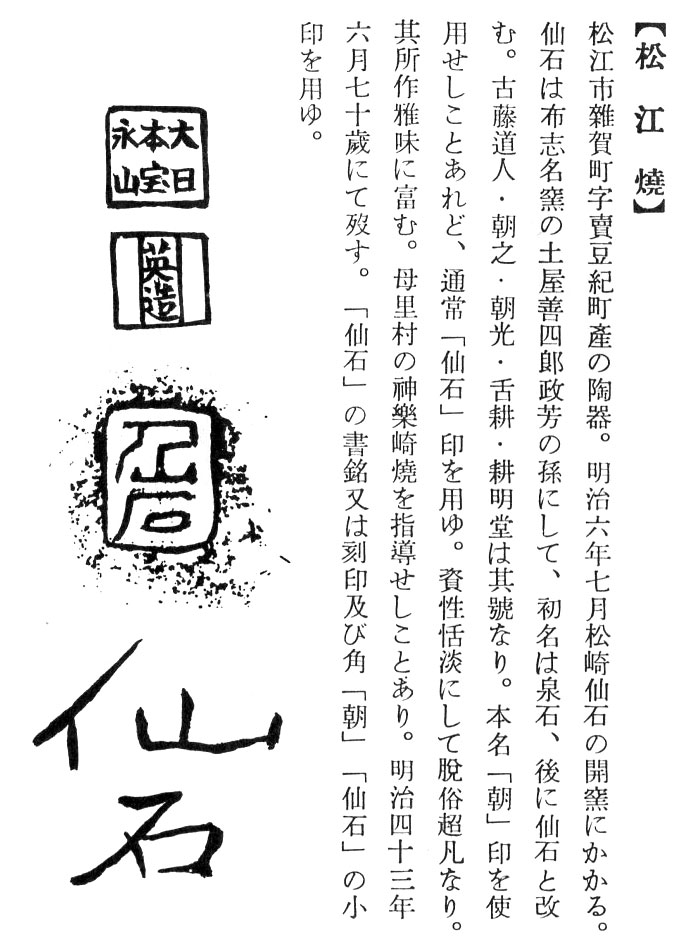 【松江燒】
松江市雜賀町字賣豆紀町產の陶器。明治六年七月松崎仙石の開窯にかかる。
仙石は布志名窯の土屋善四郞政芳の孫にして、初名は泉石、後に仙石と改
む。古藤道人・朝之・朝光・舌耕・耕明堂は其號なり。本名「朝」印を使
用せしことあれど、通常「仙石」印を用ゆ。資性恬淡にして脫俗超凡なり。
其所作雅味に富む。母里村の神樂崎燒を指導せしことあり。明治四十三年
六月七十歲にて歿す。「仙石」の書銘又は刻印及び角「朝」「仙石」の小
印を用ゆ。
大日
本宝
永山
英造
仙石
仙石